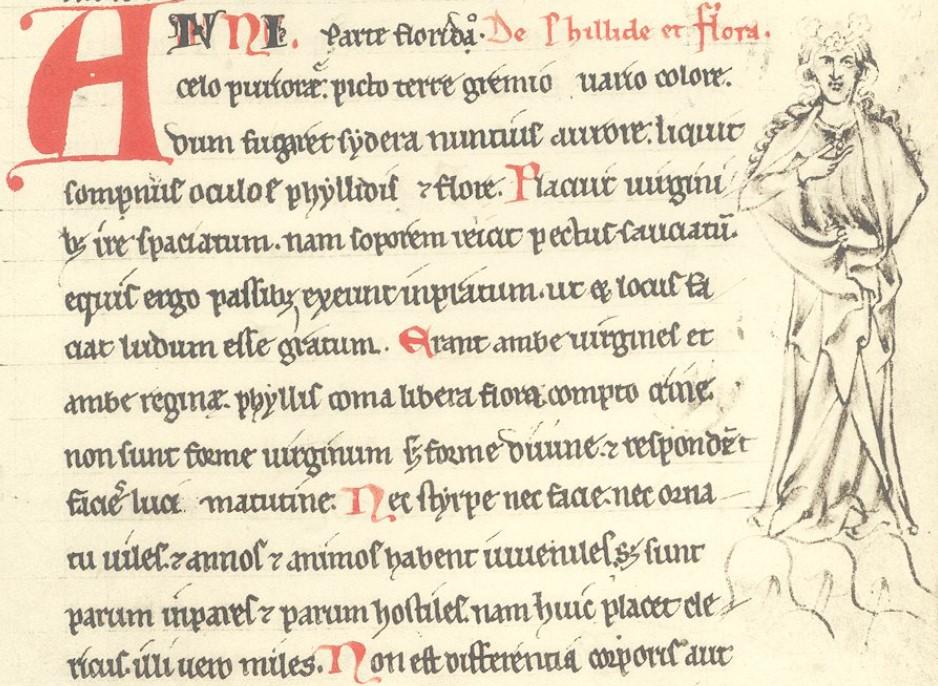 ANNI. parte florida. De Phillide et flora.
celo puriore. picto terre gremio uario colore.
dum fugaret sydera nuntius aurore. liquit
sompnus oculos phyllidis ⁊ flore. Placuit uirgini
bꝫ ire spaciatum. nam soporem reicit pectus sauciatū.
equis ergo passibꝫ exeunt in pratum. ut et locus fa
ciat ludum esse gratum. Erant ambe uirgines et
ambe regine. phyllis coma libera flora compto crine.
non sunt forme uirginum sꝫ forme diuine. ⁊ respondēt
facie luci matutine. Nec styrpe nec facie. nec orna
tu uiles. ⁊ annos ⁊ animos habent iuueniles. sꝫ sunt
parum inpares ⁊ parum hostiles. nam huic placet cle
ricus. illi uero miles. Non est differentia corporis aut